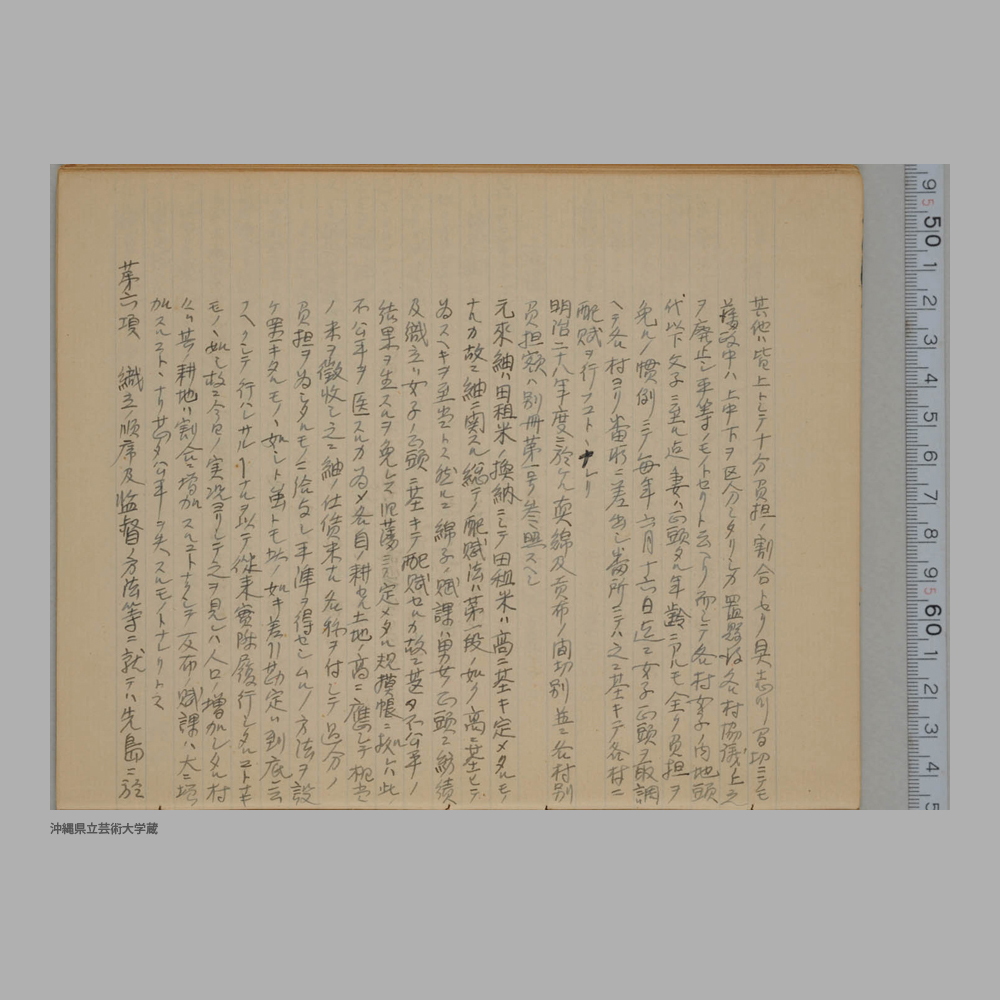 其他ハ皆上トシテ十分負担ノ割合トセリ具志川間切ニテモ
藩政中ハ上中下ヲ区分シタリシカ置県後各村協議ノ上之
ヲ廃止シ平等ノモノトセリト云ヘリ而シテ各村女子ノ内地頭
代以下文子ニ至ル迄妻ハ正頭タル年齢ニアルモ全ク負担ヲ
免ルノ慣例ニテ毎年六月十六日迄ニ女子正頭ヲ取調
ヘテ各村ヨリ番所ニ差出シ番所ニテハ之ニ基キテ各村ニ
配賦ヲ行フコトヽナレリ
明治二十八年度ニ於ケル真綿及貢布ノ間切別並ニ各村別
負担額ハ別冊第一号参照スヘシ
元来紬ハ田租米ノ換納ニシテ田租米ハ高ニ基キ定メタルモ
ナルカ故ニ紬ニ関スル総テノ配賦法ハ第一段ノ如ク高ニ基ヒテ
為スヘキヲ至当トス然ルニ綿子ノ賦課ハ男女正頭ニ紡績
及織立ハ女子ノ正頭ニ基キテ配賦セルカ故ニ甚タ不公平ノ
結果ヲ生スルヲ免レス旧藩ニテ定メタル規摸帳ニ拠レハ此
不公平ヲ医スルカ為メ各自ノ耕セル土地ノ高ニ応シテ相当
ノ米ヲ徴收シ之ニ紬ノ仕債米ナル名称ヲ付シテ過分ノ
負担ヲ為シタルモノニ給与シ平準ヲ得セシムルノ方法ヲ設
ケ置キタルモノヽ如シト雖トモ此ノ如キ差引勘定ハ到底云
フヘクシテ行ハレサルーナルヲ以テ従来実際履行シタルコトナキ
モノヽ如シ故ニ今日ノ実況ヨリシテ之ヲ見レハ人口ノ増加シタル村
ハ其ノ耕地ハ割合ニ増加スルコトナクシテ反布ノ賦課ハ大ニ増
加スルコトヽナリ甚タ公平ヲ失スルモノトナレリトス
第六項 織立ノ順序及監督ノ方法等ニ就テハ先島ニ於
9
5
50
1
2
3
4
5
6
7
8
9
5
60
1
2
3
4
5
沖縄県立芸術大学蔵